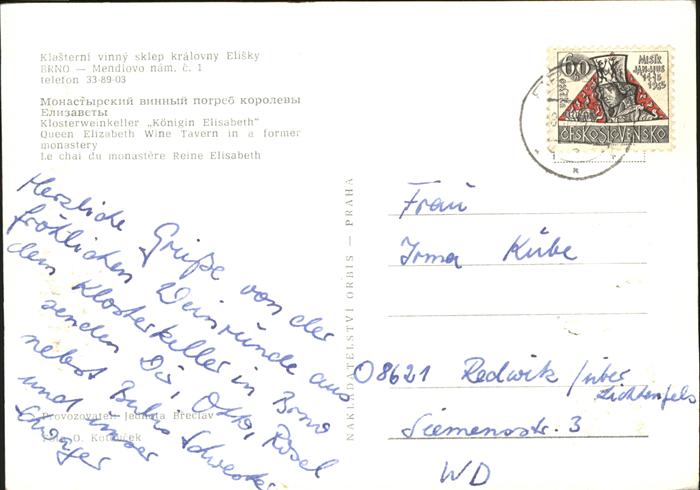 Klašterní vinný sklep královny Elišky
BRNO — Mendlovo nám. č. 1
telefon 33-89-03
Монастырский винный погреб королевы
Елизаветы
Klosterweinkeller „Königin Elisabeth"
Queen Elizabeth Wine Tavern in a former
monastery
Le chai du monastère Reine Elisabeth
Herzliche Grüße von der
fröhlichen Weinrunde aus
dem Klosterkeller in Brno
senden Dir, Otto, Rosel
nebst
und unser
Provozovatel Jednota Břeclav
Foto O.
NAKLADATELSTVÍ ORBIS — PRAHA
60
MISTR
JAN
1415
1965
ČESKOSLOVENSKO
Frau
Irma Kübe
08621 Redwik /über
Lichtenfels
Siemensstr. 3
WD